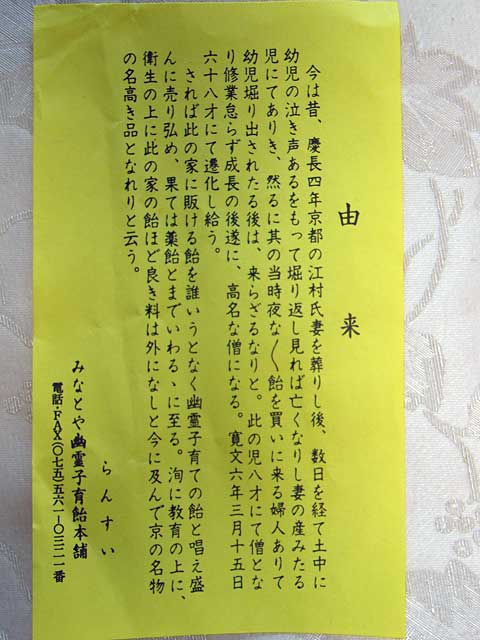 由来
今は昔、慶長四年京都の江村氏妻を葬りし後、数日を経て土中に
幼児の泣き声あるをもって堀り返し見れば亡くなりし妻の産みたる
児にてありき、然るに其の当時夜な〱飴を買いに来る婦人ありて
幼児堀り出されたる後は、来らざるなりと。此の児八才にて僧とな
り修業怠らず成長の後遂に、高名な僧になる。寛文六年三月十五日
六十八才にて遷化し給う。
されば此の家に販ける飴を誰いうとなく幽霊子育ての飴と唱え盛
んに売り弘め、果ては薬飴とまでいわるゝに至る。洵に教育の上に、
衛生の上に此の家の飴ほど良き料は外になしと今に及んで京の名物
の名高き品となれりと云う。
らんすい
みなとや幽霊子育飴本舗
電話・FAX(〇七五)五六一-〇三二一番